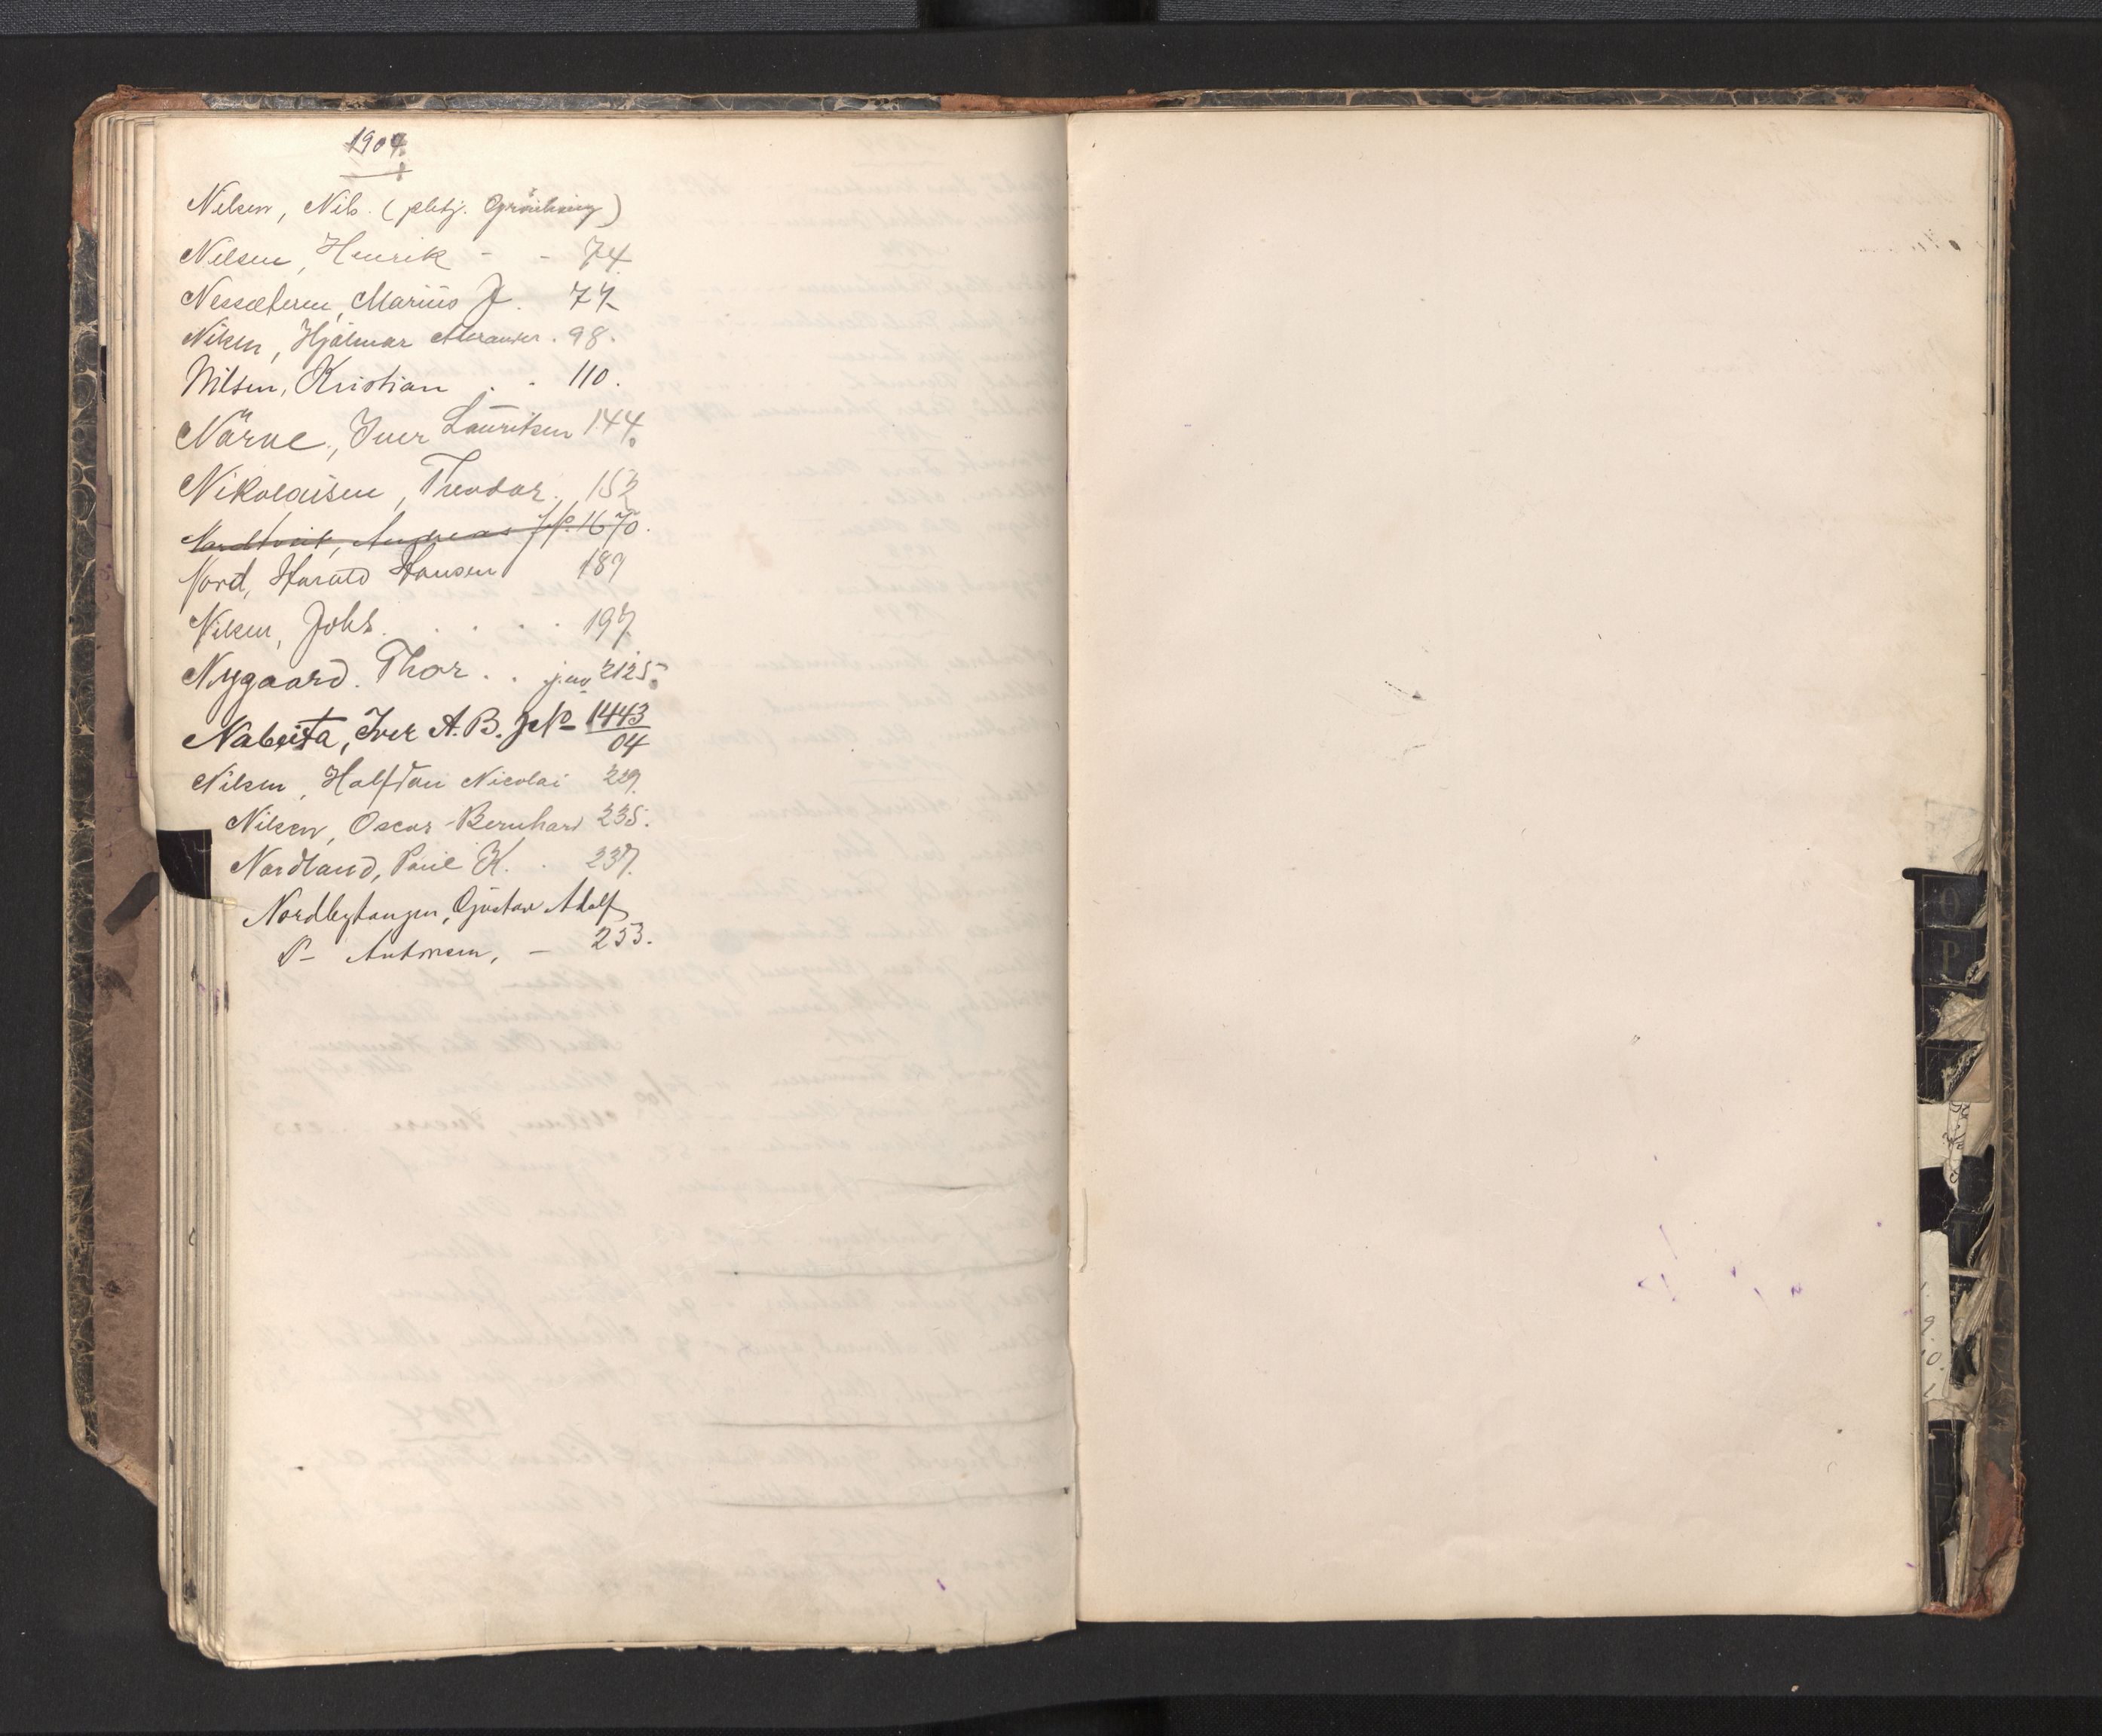 1904
Nilsen, Nils. (pletj.
Nilsen, Henrik - - 74
Nessæteren, Marius J. 77
Nilsen, Hjalmar 98.
Nilsen, Kristian . . 110.
Närue, Iver Lauritsen 144.
Nikolaisen, Theodor. 153
Nordtveit, Andreas JN. 1670.
Nord, Harald Hansen 189
Nilsen, Johs. . . . . 197.
Nygaard. Thor . . j.no 2125.
Nabeita, Iver A. B. JNo 1443/04
Nilsen, Halfdan Nicolai 229.
Nilsen, Oscar Bernhard 235.
Nordland, Paul K. . 237.
Nordbytangen, Gustav Adolf
P- Antonsen, - 253.
O
P